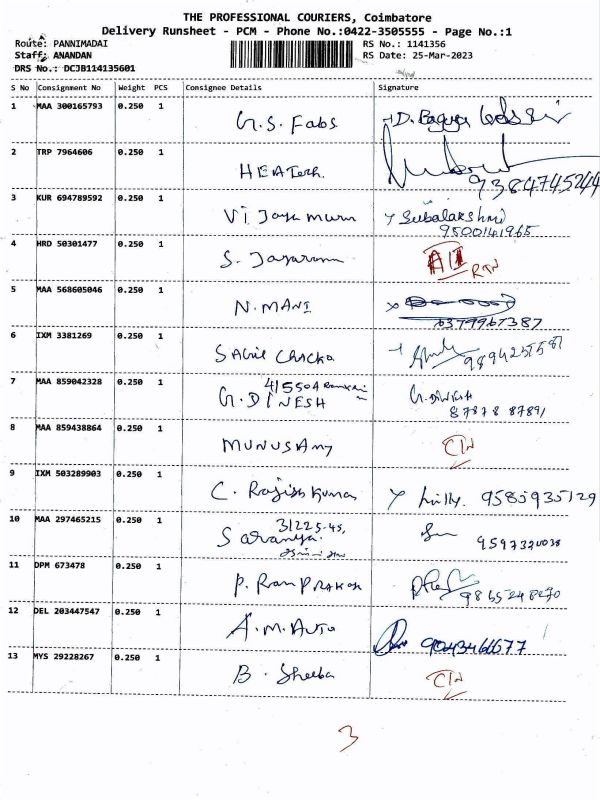 THE PROFESSIONAL COURIERS, Coimbatore
Delivery Runsheet - PCM - Phone No.:0422-3505555 - Page No.:1
Route: PANNIMADAI RS No.: 1141356
Staff: ANANDAN RS Date: 25-Mar-2023
DRS No.: DCJB114135601
S No Consignment No Weight PCS Consignee Details Signature
1 MAA 300165793 0.250 1 G.S. Fabs D.
2 TRP 7964606 0.250 1 HEATech.
9384745244
3 KUR 694789592 0.250 1 Vijayamurn Subalakshmi
9500141965
4 HRD 50301477 0.250 1 S. Jayaram
RTN
5 MAA 568605046 0.250 1 N. MANI
6379967387
6 IXM 3381269 0.250 1 SAbil Chacko
7 MAA 859042328 0.250 1 G. DINESH 4/550A G. DINESH
87878 87891
8 MAA 859438864 0.250 1 MUNUSAmy
9 IXM 503289903 0.250 1 C. Rajesh Kumar 9585935129
10 MAA 297465215 0.250 1 Saranya. 3/225-45,
9597320038
11 DPM 673478 0.250 1 P. Ram PRAKASH
9865248270
12 DEL 203447547 0.250 1 A.M. AUTO
9043466677
13 MYS 29228267 0.250 1 B. Sheeba
3